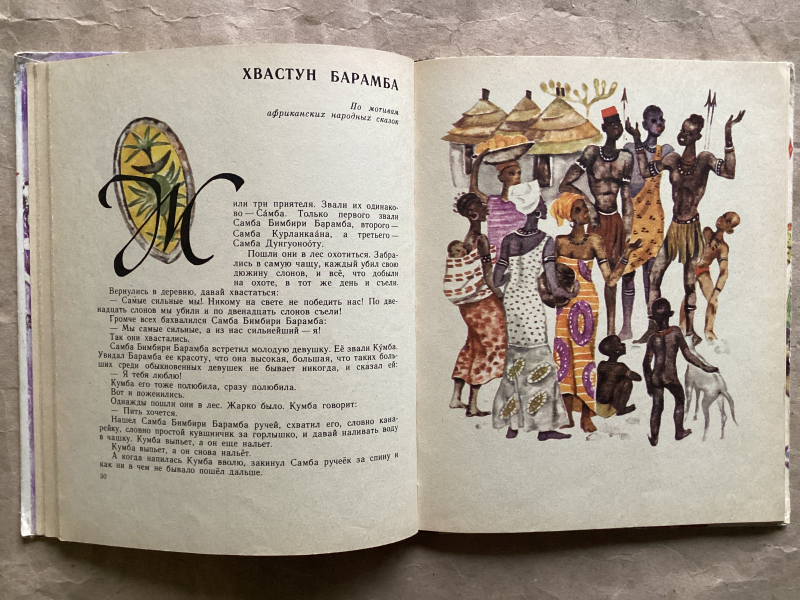 ХВАСТУН БАРАМБА
По мотивам
африканских народных сказок
Жили три приятеля. Звали их одинако-
во — Са́мба. Только первого звали
Самба Бимбири Барамба, второго —
Самба Курланкаа́на, а третьего —
Самба Дунгуоноо́ту.
Пошли они в лес охотиться. Забра-
лись в самую чащу, каждый убил свою
дюжину слонов, и всё, что добыли
на охоте, в тот же день и съели.
Вернулись в деревню, давай хвастаться:
— Самые сильные мы! Никому на свете не победить нас! По две-
надцать слонов мы убили и по двенадцать слонов съели!
Громче всех бахвалился Самба Бимбири Барамба:
— Мы самые сильные, а из нас сильнейший — я!
Так они хвастались.
Самба Бимбири Барамба встретил молодую девушку. Её звали Ку́мба.
Увидал Барамба ее красоту, что она высокая, большая, что таких боль-
ших среди обыкновенных девушек не бывает никогда, и сказал ей:
— Я тебя люблю!
Кумба его тоже полюбила, сразу полюбила.
Вот и поженились.
Однажды пошли они в лес. Жарко было. Кумба говорит:
— Пить хочется.
Нашел Самба Бимбири Барамба ручей, схватил его, словно кана-
рейку, словно простой кувшинчик за горлышко, и давай наливать воду
в чашку. Кумба выпьет, а он еще нальет.
Кумба выпьет, а он снова нальёт.
А когда напилась Кумба вволю, закинул Самба ручеёк за спину и
как ни в чем не бывало пошёл дальше.
30